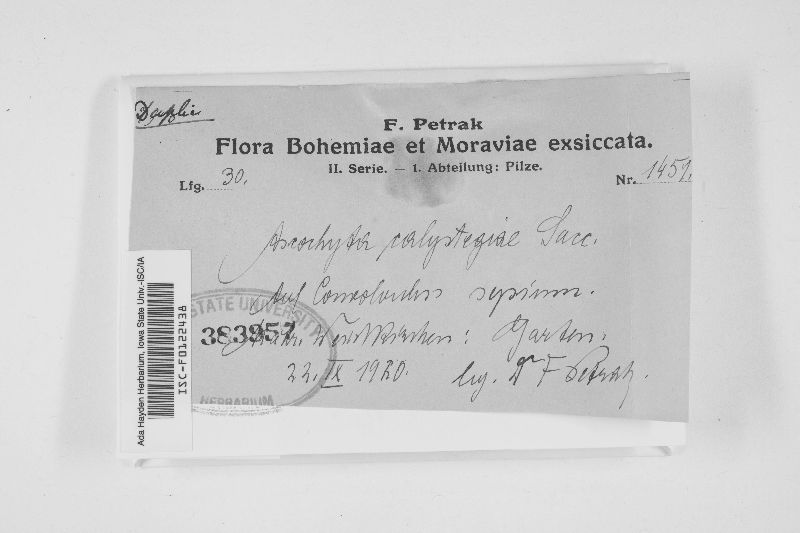 Duplic
F. Petrak
Flora Bohemiae et Moraviae exsiccata.
II. Serie. — 1. Abteilung: Pilze.
Lfg. 30.
Nr. 1459.
Ascochyta calystegiae Sacc.
Auf Convolvulus sepium.
Mähr. Weisskirchen: Garten.
22. IX 1920. leg. Dr F Petrak.
STATE UNIVERSITY
383957
HERBARIUM
Ada Hayden Herbarium, Iowa State Univ.-ISC/IA
ISC-F0122438